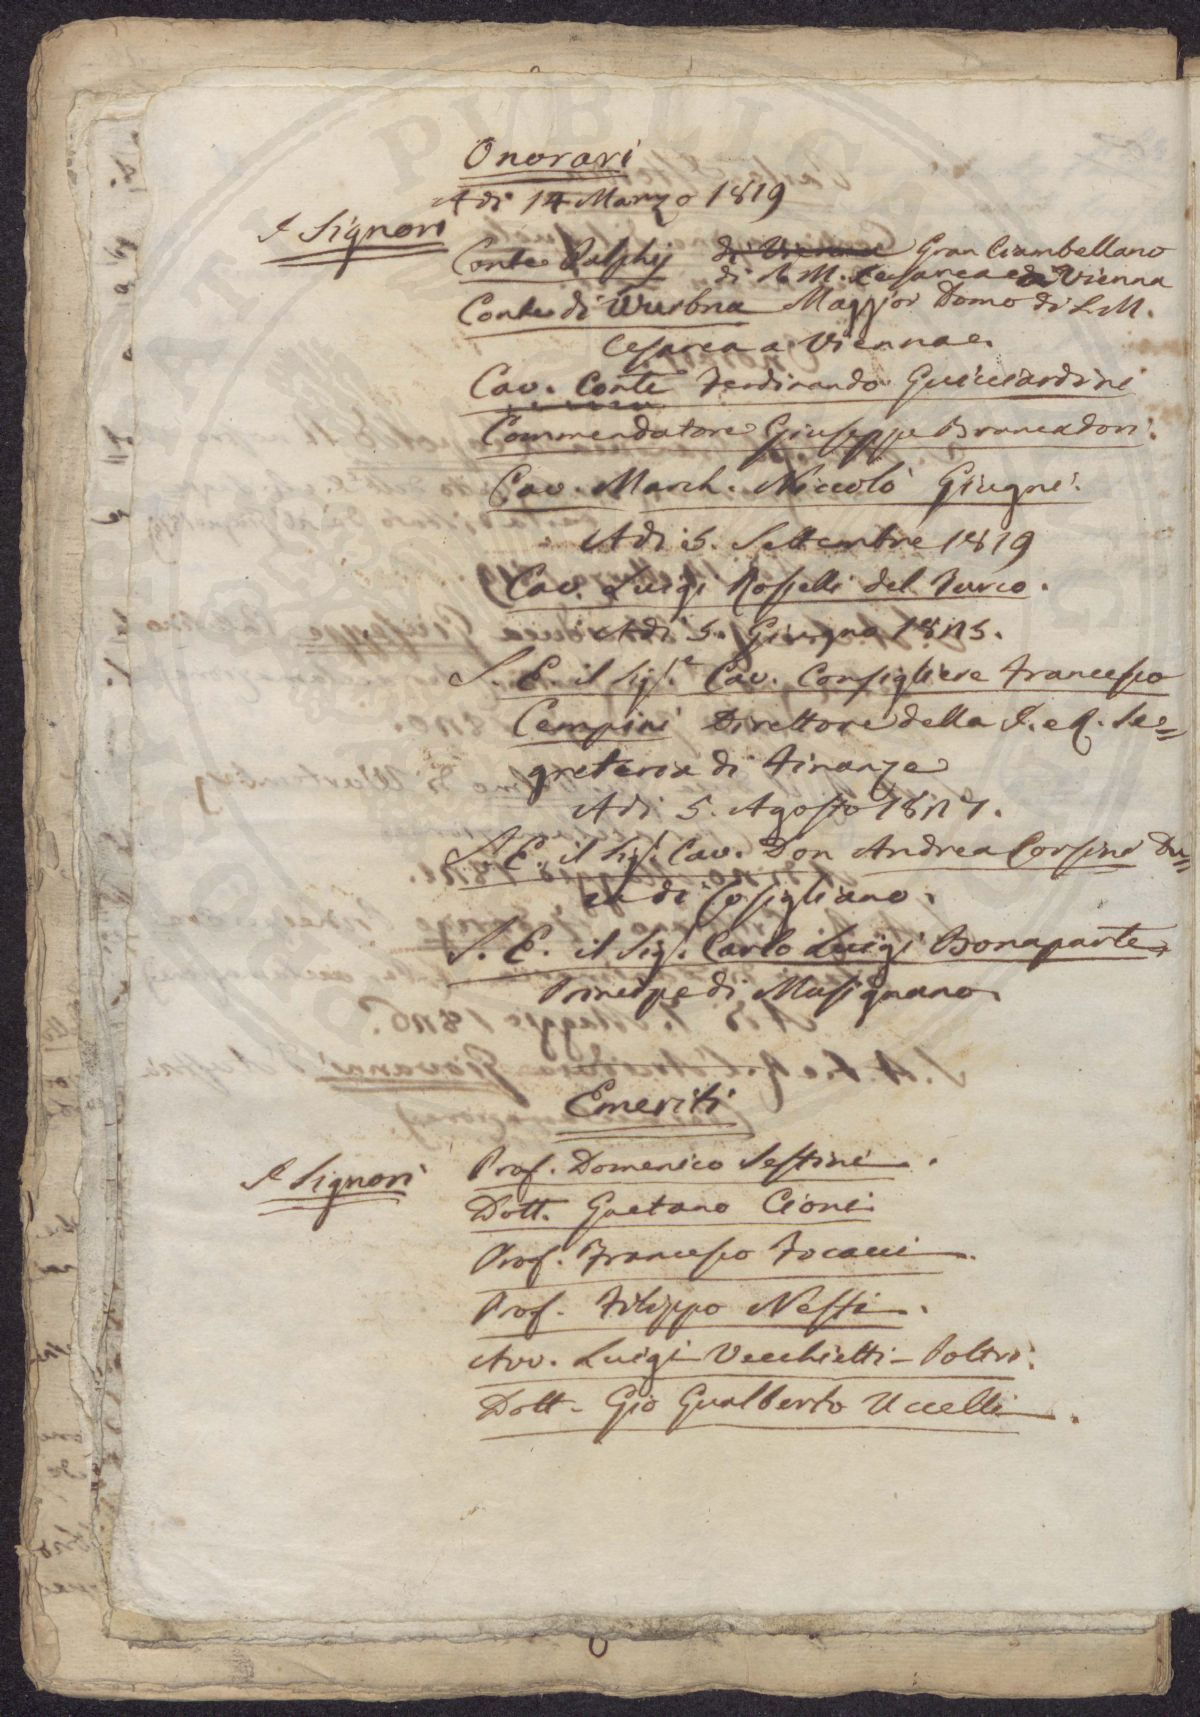 Onorari
Adi 14 Marzo 1819
I Signori
Conte Palphij di Vienna Gran Ciambellano
di S. M. Cesarea a Vienna
Conte di Wurbna Maggior Domo di S. M.
Cesarea a Vienna.
Cav. Conte Ferdinando Guicciardini
Commendatore Giuseppe Brancadori.
Cav. March. Niccolò Giugni.
Adi 5. Settembre 1819
Cav. Luigi Rosselli del Turco.
Adi 5. Giugno 1825.
S. E. il Sig.e Cav. Consigliere Francesco
Cempini Direttore della I. e R. Se=
greteria di Finanze
Adi 5. Agosto 1827.
S. E. il Sig. Cav. Don Andrea Corsini Du=
ca di Cosigliano.
S. E. il Sig. Carlo Luigi Bonaparte
Principe di Musignano.
Emeriti
I Signori
Prof. Domenico Sestini.
Dott. Gaetano Cioni.
Prof. Francesco Focacci.
Prof. Filippo Nesti.
Avv. Luigi Vecchietti-Poltri.
Dott. Gio Gualberto Uccelli.